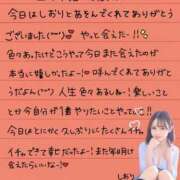 今日はしおりとあそんでくれてありがとう
ございました(^^)💕 やっと会えた…!!💦
色々あったけどこうやって今日また会えたのが
本当に嬉しかったよー!💗呼んでくれてありがと
うだよん(^^) 人生色々あるしね!楽しいこと
とか今自分が1番やりたいことやってこ💛
今日はとにかく久しぶりにたくさんイチャ
イチャできて幸せだったよー!また来月
会えたらいいなー💗
しおり